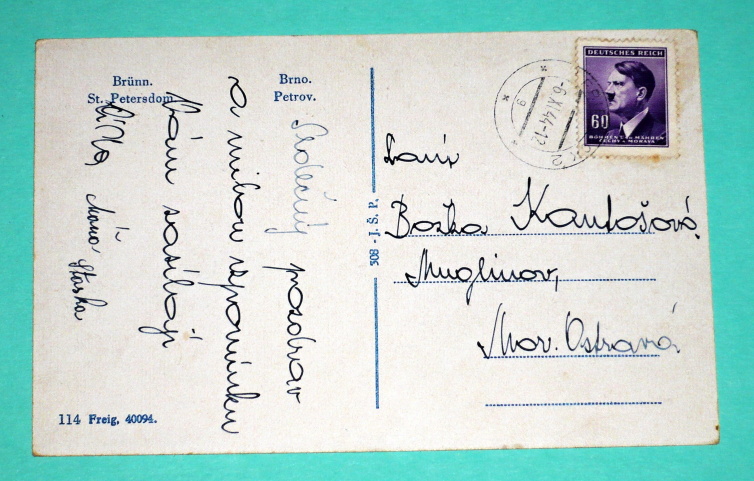 Brünn.
St. Petersdom.
Brno.
Petrov.
Srdečný pozdrav
a milou vzpomínku
Vám zasílají
Máňa Staska
114 Freig, 40094.
308 - J. Š. P.
DEUTSCHES REICH
60
BÖHMEN u. MÄHREN
ČECHY a MORAVA
-6.XI.44-12
Božka Kantošová.
Muglinov,
Mor. Ostrava